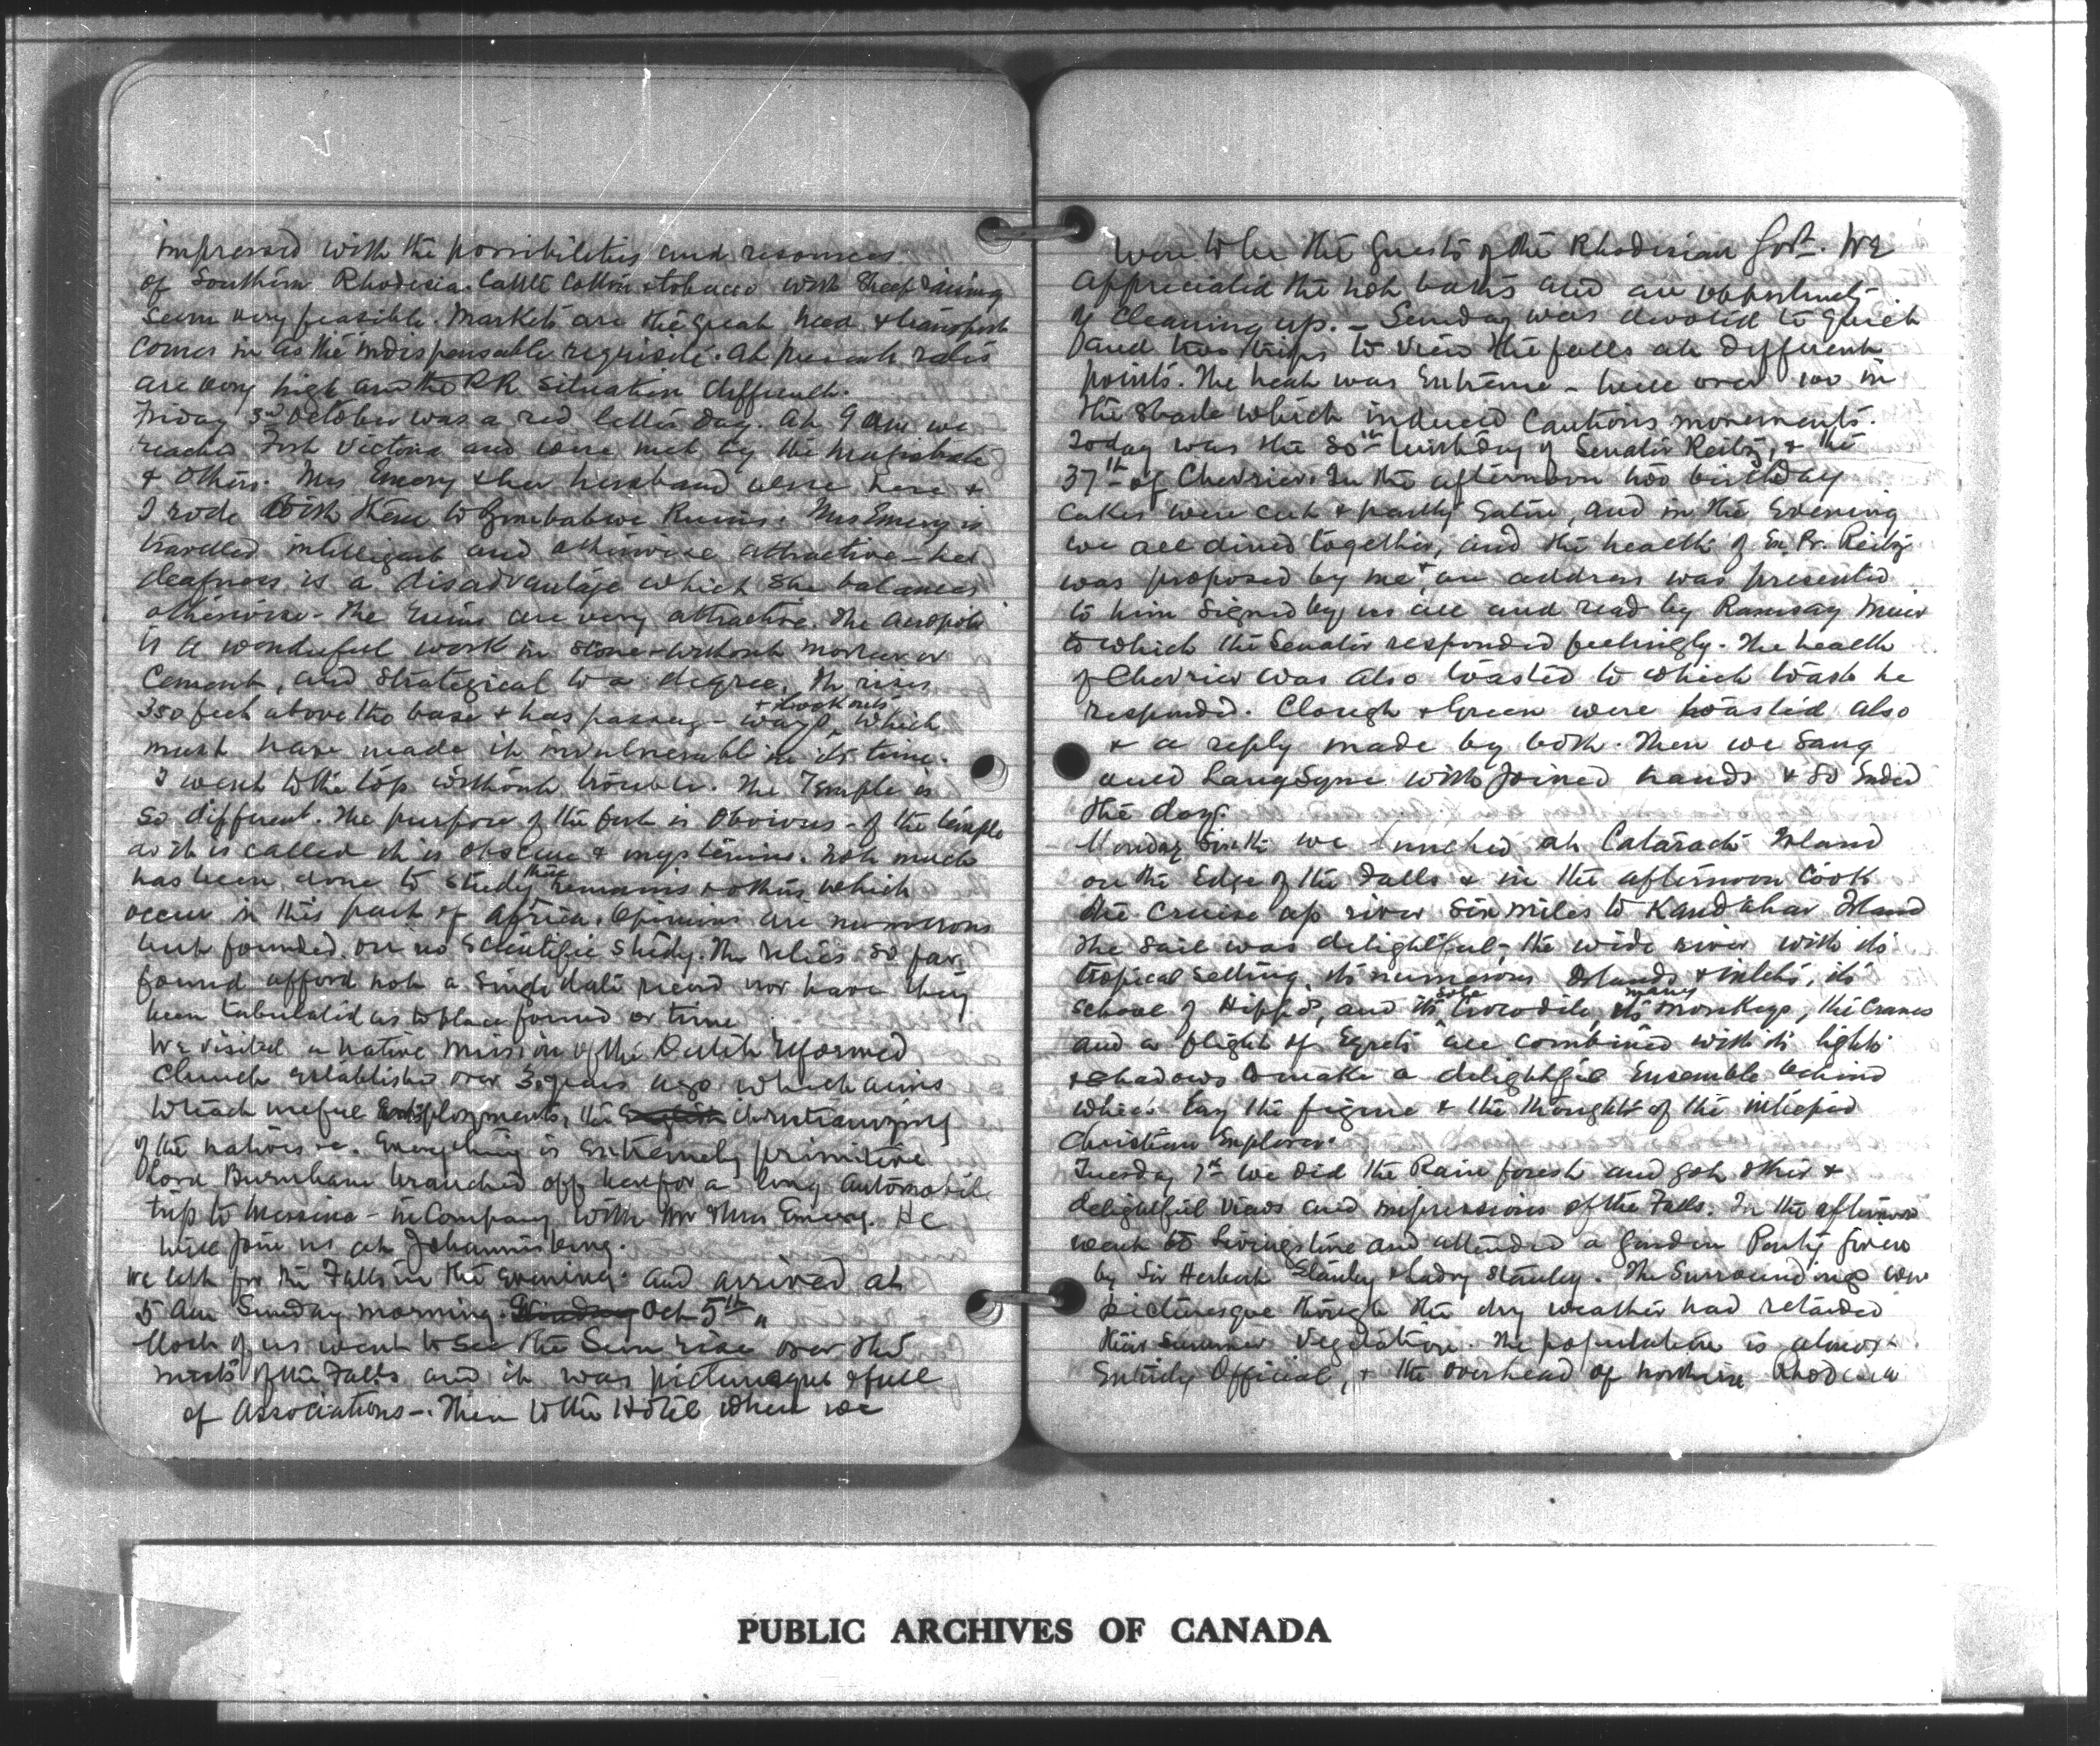 impressed with the possibilities and resources
of Southern Rhodesia. Cattle Cotton & tobacco with Sheep raising
seem very feasible. Markets are the great need & transport
comes in as the indispensable requisite. At present rates
are very high and the RR situation difficult.
Friday 3rd October was a red letter day. At 9 am we
reached Fort Victoria and were met by the Magistrate
& others. Mrs Emery & her husband were here &
I rode with them to Zimbabwe Ruins. Mrs Emery is
travelled intelligent and otherwise attractive - her
deafness is a disadvantage which she balances
otherwise - The ruins are very attractive. The Acropolis
is a wonderful work in stone - without mortar or
Cement, and strategical to a degree. It rises
350 feet above the base & has passage-ways & lookouts which
must have made it invulnerable in its time.
I went to the top without trouble. The Temple is
so different. The purpose of the fort is obvious - of the temple
as it is called it is obscure & mysterious. Not much
has been done to study these remains & others which
occur in this part of Africa. Opinions are numerous
but founded on no scientific study. The relics so far
found afford not a single date record nor have they
been tabulated as to place found or time
We visited a native mission of the Dutch Reformed
Church established over 30 years ago which aims
to teach useful employments, the English christianizing
of the natives &c. Everything is extremely primitive
Lord Burnham branched off here for a long automobile
trip to Messina - in Company with Mr & Mrs Emery. He
will join us at Johannisburg.
We left for the Falls in the evening and arrived at
5 am Sunday morning. Oct 5th "
Most of us went to see the Sun rise over the
mists of the Falls and it was picturesque & full
of Associations -. Then to the Hotel where we
were to be the Guests of the Rhodesian Govt. We
appreciated the hot baths and an opportunity
of cleaning up. - Sunday was devoted to quiet
and two trips to view the falls at different
points. The heat was extreme - well over 100 in
the shade which induced cautious movements.
Today was the 80th birthday of Senator Reitz, & the
37th of Chevrier. In the afternoon two birthday
cakes were cut & partly eaten, and in the evening
we all dined together, and the health of Ex Pr. Reitz
was proposed by me & an address was presented
to him signed by us all and read by Ramsay Muir
to which the Senator responded feelingly. The health
of Chevrier was also toasted to which toast he
responded. Clough & Green were toasted also
& a reply made by both. Then we sang
auld Lang Syne with joined hands & so ended
the day.
Monday Sixth we lunched at Cataract Island
on the edge of the Falls & in the afternoon took
the cruise up river six miles to Kandahar Island
The sail was delightful - the wide river with its
tropical setting, its numerous Islands & inlets, its
school of Hippos, and its sole crocodile, its many monkeys, the Cranes
and a flight of Egrets all combined with its lights
& shadows to make a delightful Ensemble behind
which lay the figure & the thought of the intrepid
Christian Explorer.
Tuesday 7th we did the Rain forest and got other &
delightful views and impressions of the Falls. In the afternoon
went to Livingstone and attended a Garden Party given
by Sir Herbert Stanley & Lady Stanley. The surroundings were
picturesque though the dry weather had retarded
their summer vegetation. The population is almost
entirely Official, & the overhead of northern Rhodesia
PUBLIC ARCHIVES OF CANADA